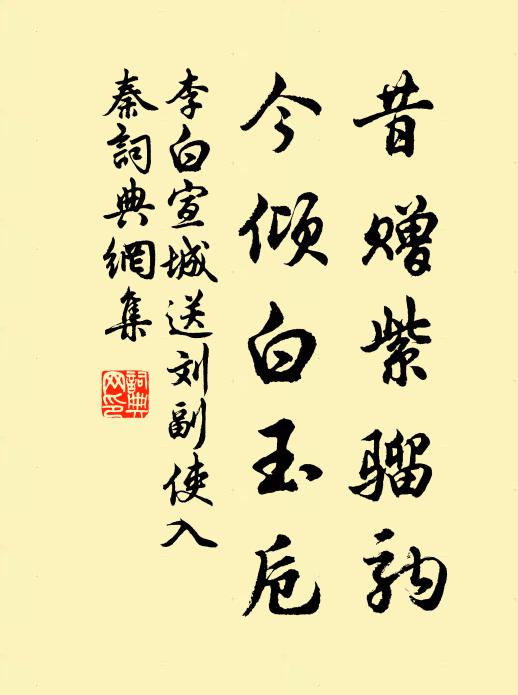 昔赠紫骝駒
今倾白玉卮
李白宣城送刘副使入
秦詞典網集
詞典网印